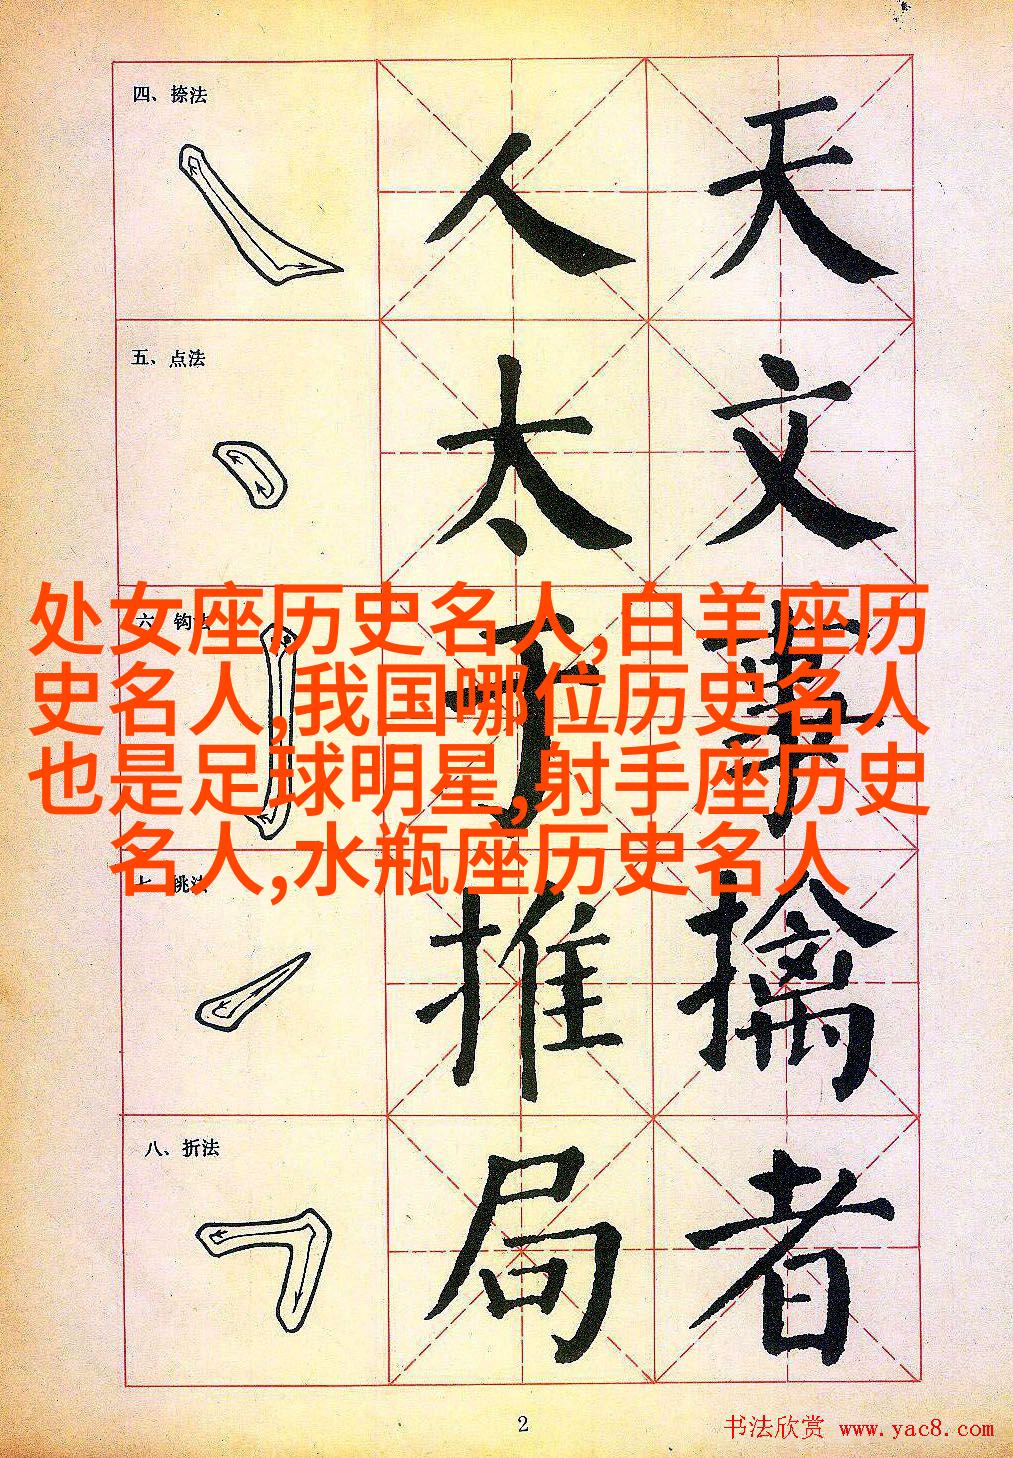 四、捺法
人 天
五、点法
太 文
六、钩法
于 事
处女座历史名人,白羊座历
史名人,我国哪位历史名人
也是足球明星,射手座历史
名人,水瓶座历史名人
七、挑法
推 擒
八、折法
局 者
2
书法欣赏 www.yac8.com